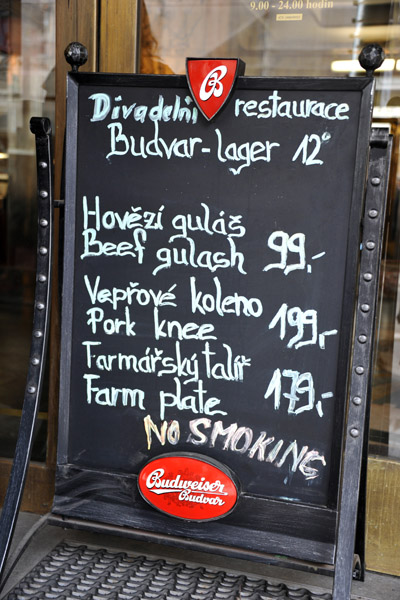 9.00 - 24.00 hodin
B
Divadelní restaurace
Budvar-lager 12°
Hovězí guláš
Beef gulash 99,-
Vepřové koleno
Pork knee 199,-
Farmářský talíř
Farm plate 179,-
NO SMOKING
Budweiser
Budvar